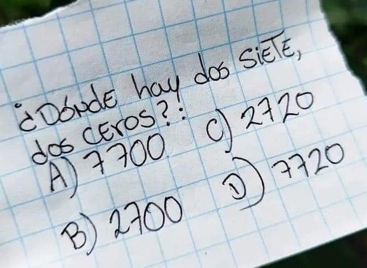 ¿DóNdE hay dos SiETE,
dos CEros?!
A) 7700 C) 2720
B) 2700 D) 7720